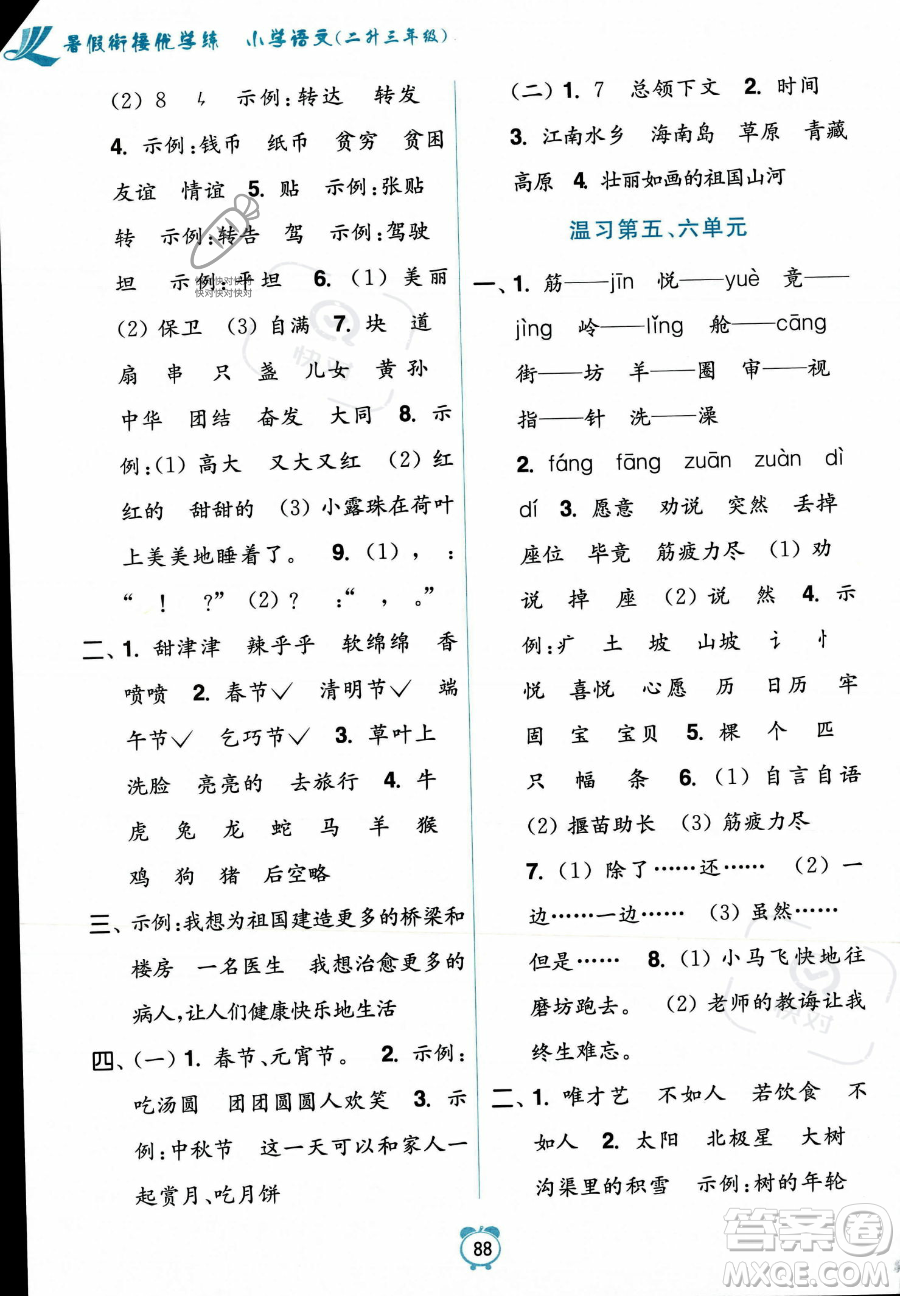 暑假衔接优学练 小学语文(二升三年级)
(2)8 ㄣ 示例:转达 转发
4. 示例:钱币 纸币 贫穷 贫困
友谊 情谊 5. 贴 示例:张贴
转 示例:转告 驾 示例:驾驶
坦 示例:平坦 6. (1)美丽
(2)保卫 (3)自满 7. 块 道
扇 串 只 盏 儿女 黄孙
中华 团结 奋发 大同 8. 示
例:(1)高大 又大又红 (2)红
红的 甜甜的 (3)小露珠在荷叶
上美美地睡着了。 9. (1), :
“ ! ?”(2)? :“ , 。”
二、1. 甜津津 辣乎乎 软绵绵 香
喷喷 2. 春节✓ 清明节✓ 端
午节✓ 乞巧节✓ 3. 草叶上
洗脸 亮亮的 去旅行 4. 牛
虎 兔 龙 蛇 马 羊 猴
鸡 狗 猪 后空略
三、示例:我想为祖国建造更多的桥梁和
楼房 一名医生 我想治愈更多的
病人,让人们健康快乐地生活
四、(一)1. 春节、元宵节。 2. 示例:
吃汤圆 团团圆圆人欢笑 3. 示
例:中秋节 这一天可以和家人一
起赏月、吃月饼
(二)1. 7 总领下文 2. 时间
3. 江南水乡 海南岛 草原 青藏
高原 4. 壮丽如画的祖国山河
温习第五、六单元
一、1. 筋——jīn 悦——yuè 竟——
jìng 岭——lǐng 舱——cāng
街——坊 羊——圈 审——视
指——针 洗——澡
2. fáng fāng zuān zuàn dì
dí 3. 愿意 劝说 突然 丢掉
座位 毕竟 筋疲力尽 (1)劝
说 掉 座 (2)说 然 4. 示
例:疒 土 坡 山坡 讠 忄
悦 喜悦 心愿 历 日历 牢
固 宝 宝贝 5. 棵 个 匹
只 幅 条 6. (1)自言自语
(2)揠苗助长 (3)筋疲力尽
7. (1)除了……还…… (2)一
边……一边…… (3)虽然……
但是…… 8. (1)小马飞快地往
磨坊跑去。 (2)老师的教诲让我
终生难忘。
二、1. 唯才艺 不如人 若饮食 不
如人 2. 太阳 北极星 大树
沟渠里的积雪 示例:树的年轮
88
快对快对快对
快对快对快对
快对
快对
答案卷
MXQE.COM